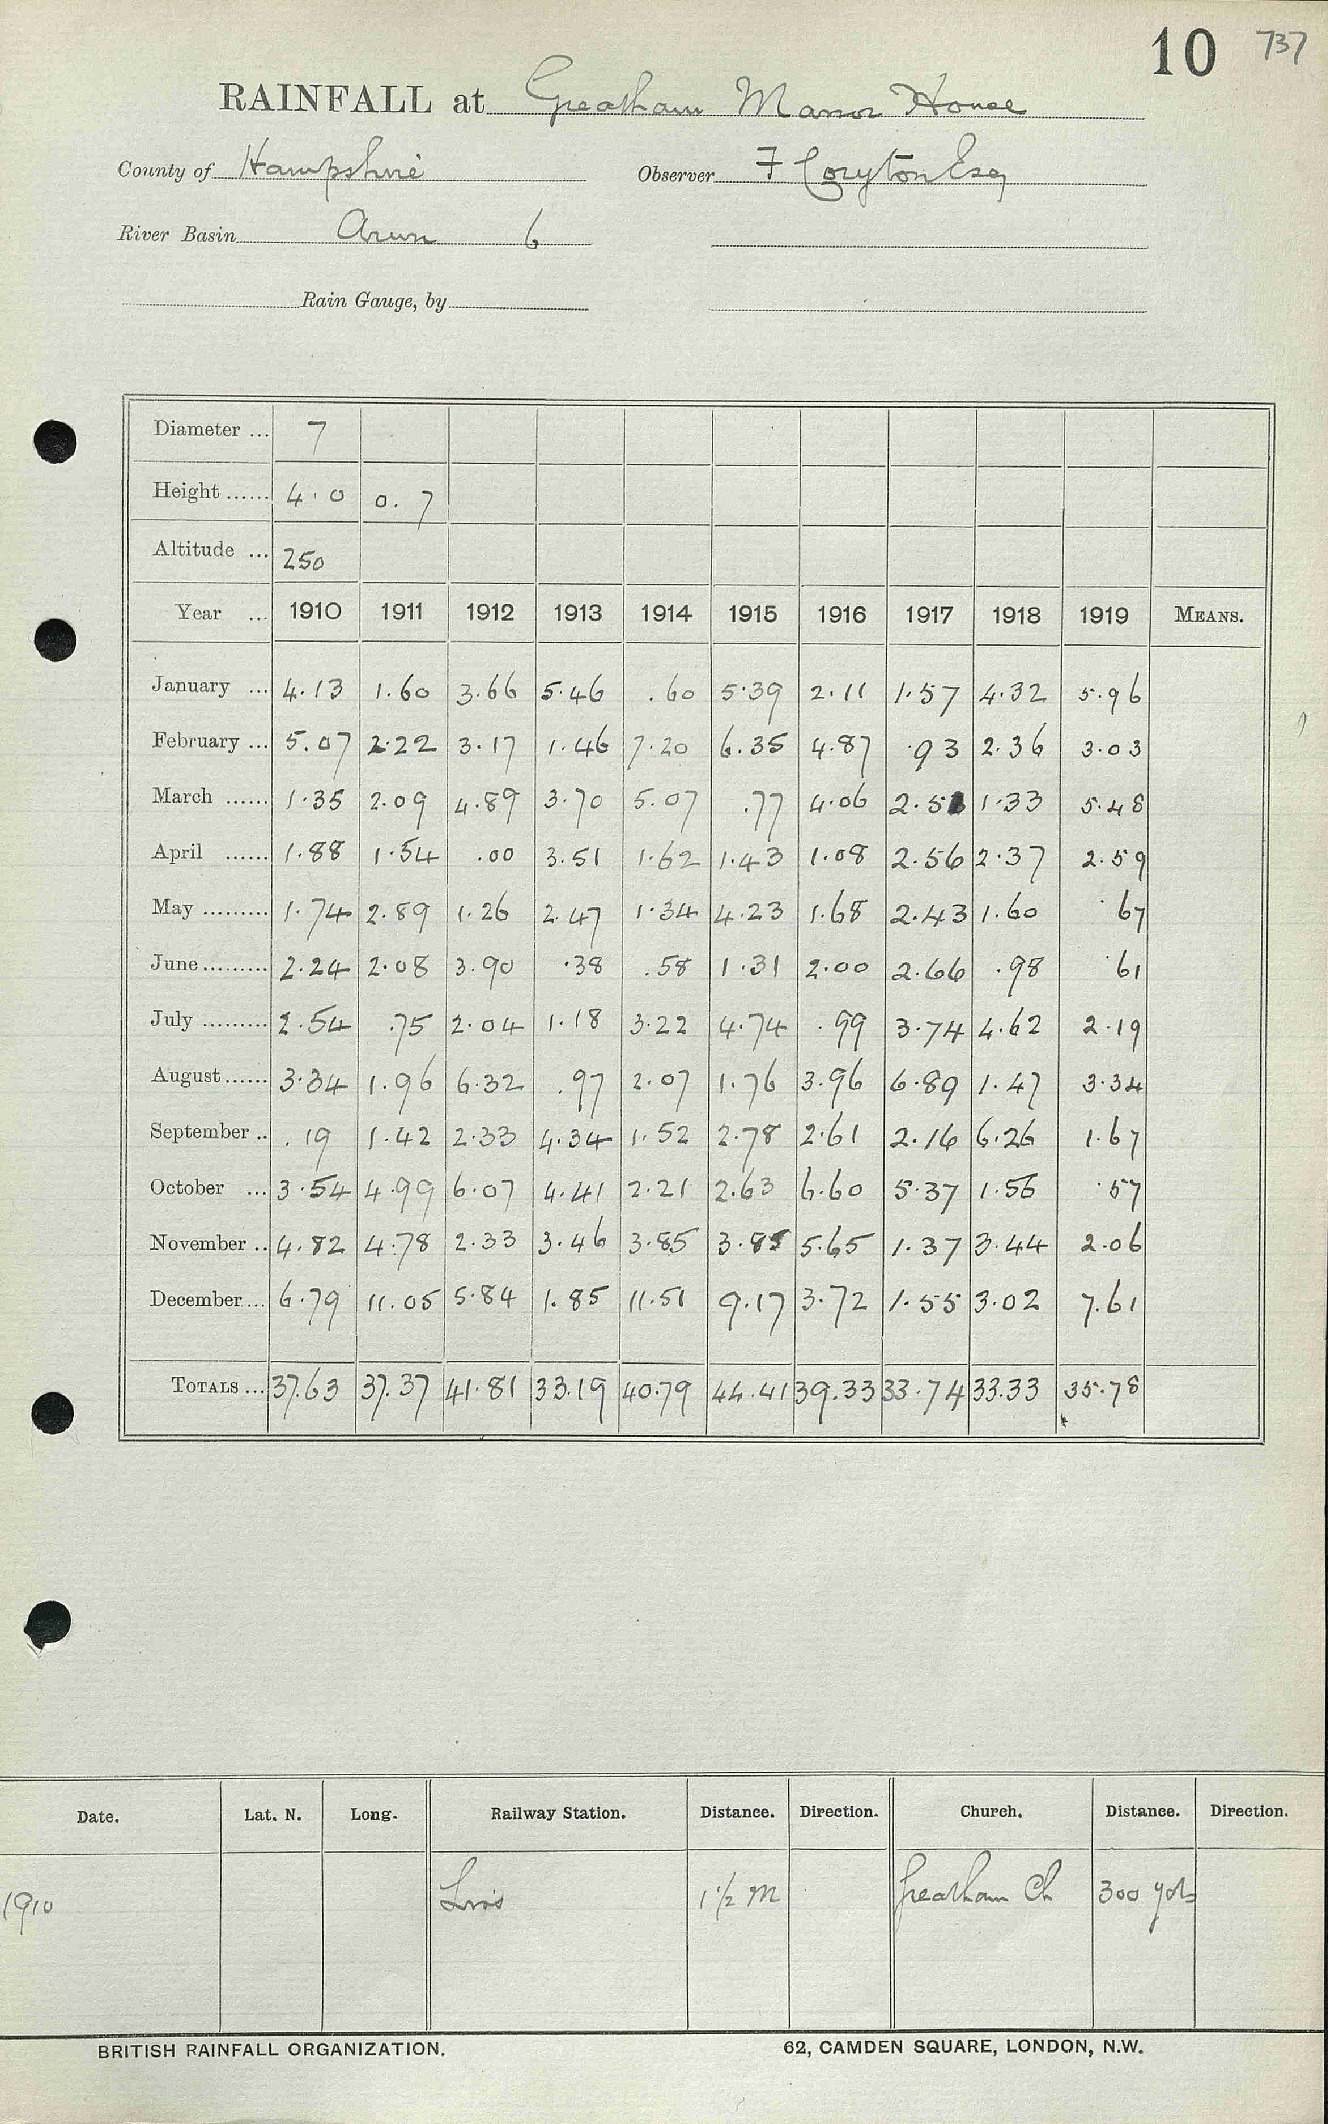 10 737
RAINFALL at Greatham Manor House
County of Hampshire Observer F Coryton Esq
River Basin Arun 6
Rain Gauge, by
Diameter ... 7
Height ...... 4.0 0.7
Altitude ... 250
Year ... 1910 1911 1912 1913 1914 1915 1916 1917 1918 1919 MEANS.
January ... 4.13 1.60 3.66 5.46 .60 5.39 2.11 1.57 4.32 5.96
February ... 5.07 2.22 3.17 1.46 7.20 6.35 4.87 .93 2.36 3.03
March ...... 1.35 2.09 4.89 3.70 5.07 .77 4.06 2.51 1.33 5.48
April ...... 1.88 1.54 .00 3.51 1.62 1.43 1.08 2.56 2.37 2.59
May ......... 1.74 2.89 1.26 2.47 1.34 4.23 1.68 2.43 1.60 .67
June ......... 2.24 2.08 3.90 .38 .58 1.31 2.00 2.66 .98 .61
July ......... 2.54 .75 2.04 1.18 3.22 4.74 .99 3.74 4.62 2.19
August ...... 3.34 1.96 6.32 .97 2.07 1.76 3.96 6.89 1.47 3.34
September .. .19 1.42 2.33 4.34 1.52 2.78 2.61 2.16 6.26 1.67
October ... 3.54 4.99 6.07 4.41 2.21 2.63 6.60 5.37 1.56 .57
November .. 4.82 4.78 2.33 3.46 3.85 3.85 5.65 1.37 3.44 2.06
December ... 6.79 11.05 5.84 1.85 11.51 9.17 3.72 1.55 3.02 7.61
TOTALS ... 37.63 37.37 41.81 33.19 40.79 44.41 39.33 33.74 33.33 35.78
Date. Lat. N. Long. Railway Station. Distance. Direction. Church. Distance. Direction.
1910 Liss 1 1/2 M Greatham Ch 300 yds
BRITISH RAINFALL ORGANIZATION. 62, CAMDEN SQUARE, LONDON, N.W.